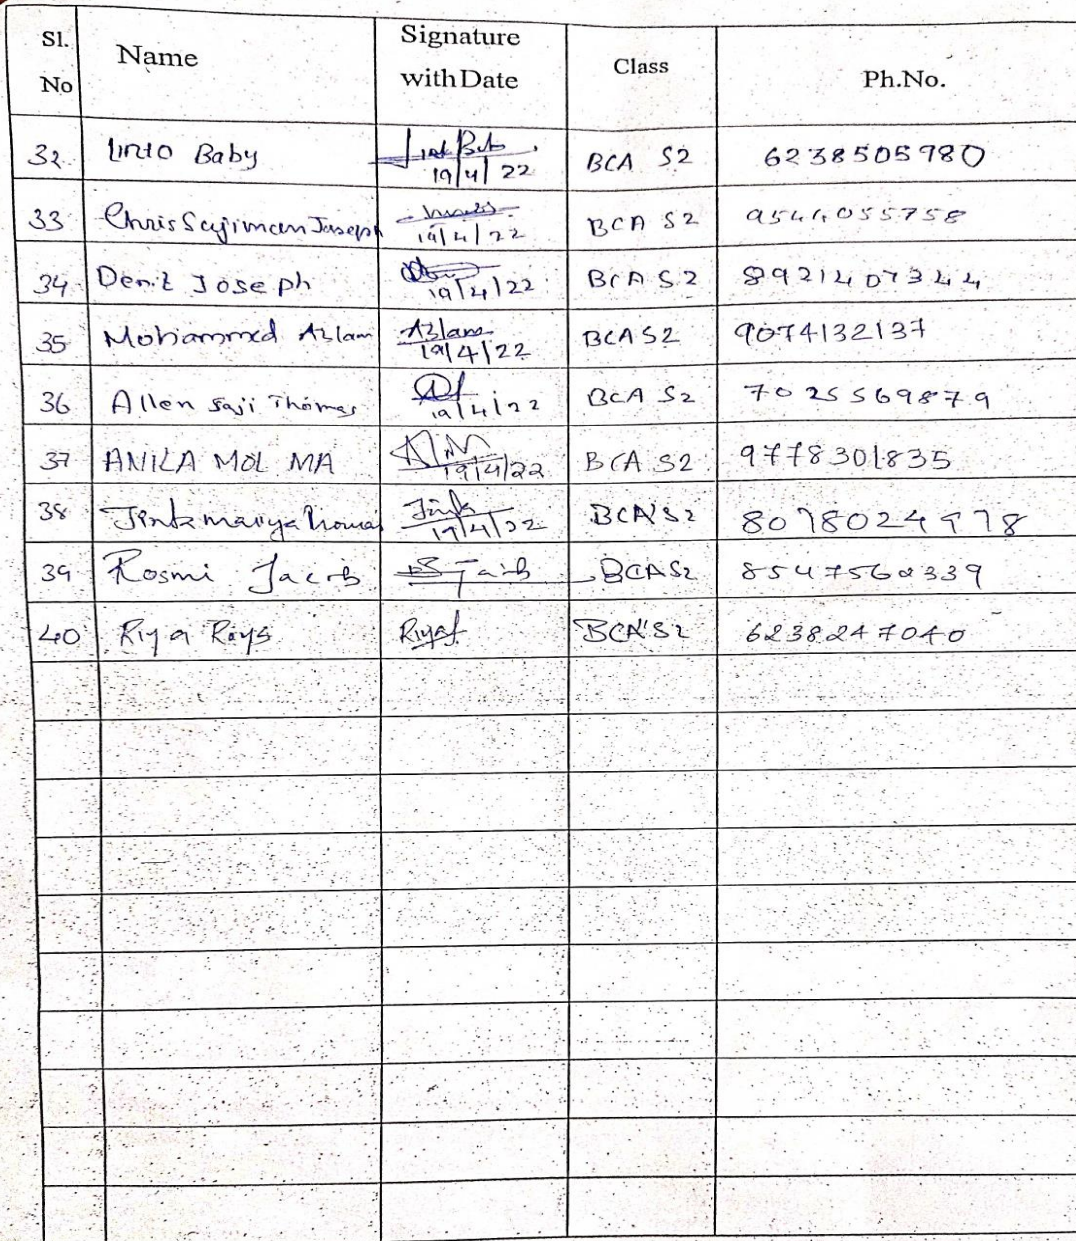 Sl. No Name Signature with Date Class Ph.No.
32 Linto Baby 19/4/22 BCA S2 6238505980
33 Chris Sajiman Joseph 19/4/22 BCA S2 9544055758
34 Denit Joseph 19/4/22 BCA S2 8921407344
35 Mohammed Azlam Azlam 19/4/22 BCA S2 9074132137
36 Allen Saji Thomas 19/4/22 BCA S2 7025569879
37 ANILA MOL MA 19/4/22 BCA S2 9778301835
38 Thomas 19/4/22 BCA S2
39 Rosmi Jacob BCA S2
40 Riya Roys Riya BCA S2 6238247040